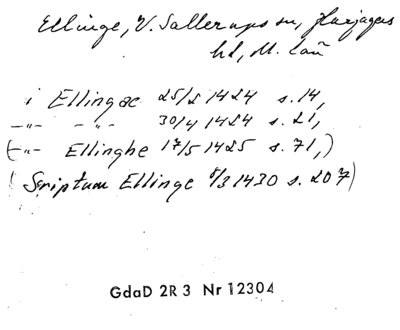 Ellinge, V. Sallerups sn, Harjagers
hd, M. län
i Ellingæ 25/2 1424 s. 14,
-"- -"- 30/4 1424 s. 21,
(-"- Ellinghe 17/5 1425 s. 71,)
(Scriptum Ellinge 8/3 1430 s. 207)
GdaD 2R3 Nr 12304